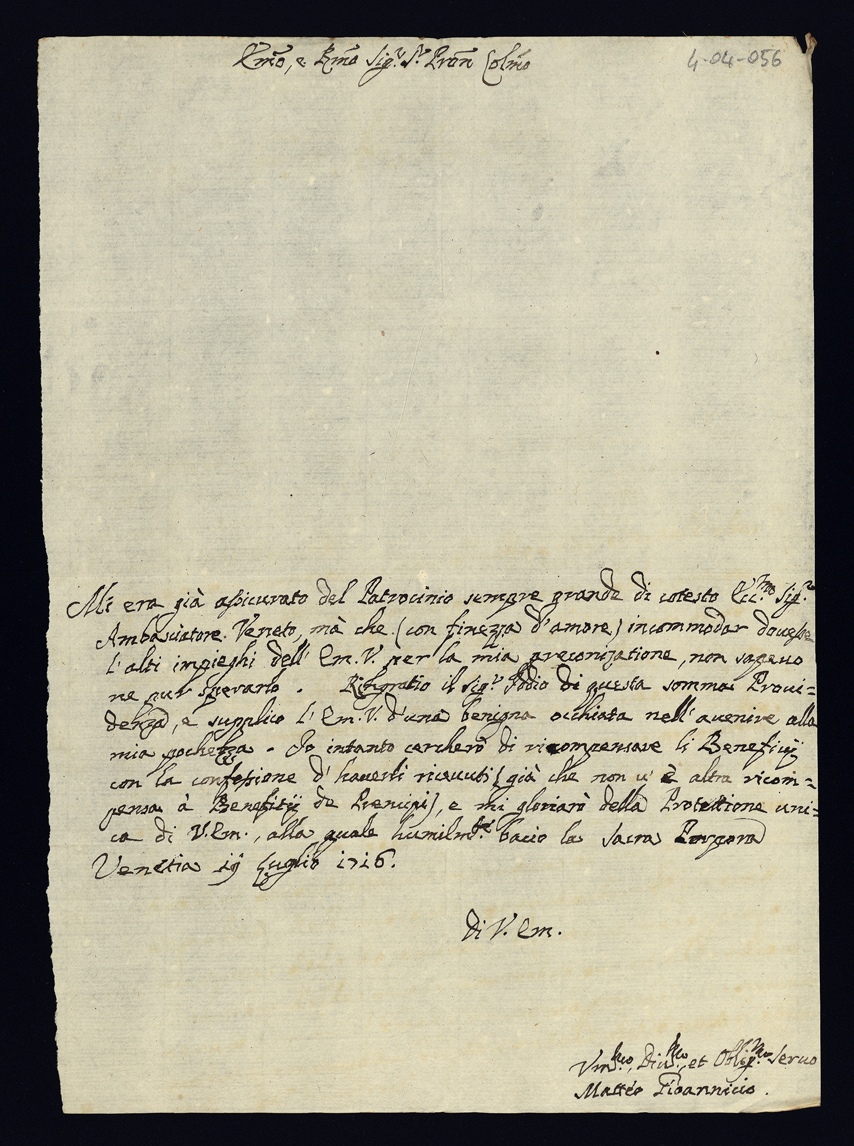 Em̃o, e Rm̃o Sig.r S.r Pron̄ Colm̃o
4-04-056
Mi era già assicurato del Patrocinio sempre grande di cotesto Ecc.mo Sig.r
Ambasciatore Veneto, mà che (con finezza d'amore) incommodar dovesse
l'alti impieghi dell'Em.V. per la mia preconizatione, non sapevo
ne pur sperarlo. Ringratio il sig.r Iddio di questa somma Provi=
denza, e supplico l'Em.V. d'una benigna occhiata nell'avenire alla
mia pochezza. Io intanto cercherò di ricompensare li Beneficij
con la confessione d'haverli ricevuti (già che non v'è altra ricom=
pensa à Benefitij de Prencipi), e mi gloriarò della Protettione uni=
ca di V.Em., alla quale humilm.te bacio la sacra Porpora
Venetia Luglio 1716.
Di V. Em.
Vm̃o, et Oblig.mo Servo
Matteo